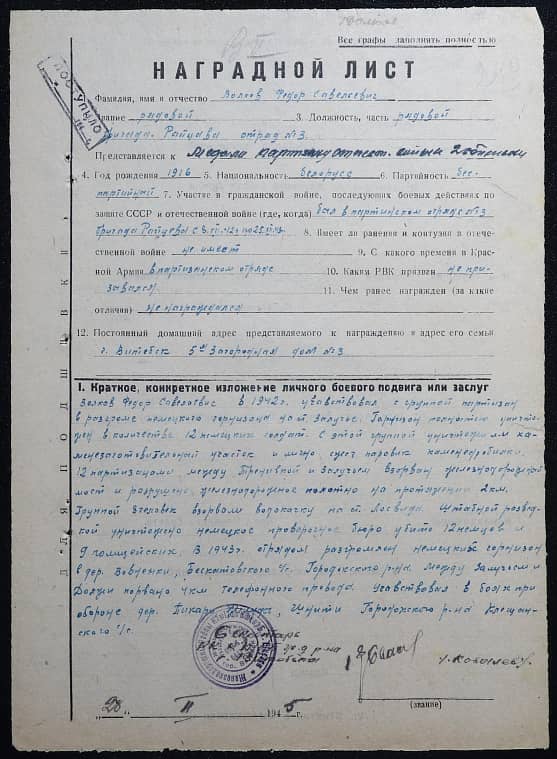 Все графы заполнить полностью
НАГРАДНОЙ ЛИСТ
ПОСТУПИЛО
Фамилия, имя и отчество Волков Федор Савельевич
звание рядовой 3. Должность, часть рядовой
бригада Райцева отряд №3
Представляется к Медали партизану отечест. войны 2 степени
4. Год рождения 1916 5. Национальность белорусс 6. Партийность бес-
партийный 7. Участие в гражданской войне, последующих боевых действиях по
защите СССР и отечественной войне (где, когда) был в партизанском отряде №3
бригада Райцева с 8. Имеет ли ранения и контузии в отече-
ственной войне не имеет 9. С какого времени в Крас-
ной Армии в партизанском отряде 10. Каким РВК призван не при-
зывался 11. Чем ранее награжден (за какие
отличия) не награждался
12. Постоянный домашний адрес представляемого к награждению и адрес его семьи
г. Витебск 5ая Загородная дом №3
ДЛЯ ПОДШИВКИ
I. Краткое, конкретное изложение личного боевого подвига или заслуг
Волков Федор Савельевич в 1942г. участвовал с группой партизан
в разгроме немецкого гарнизона на ст Залучье. Гарнизон полностью уничто-
жен в количестве 12 немецких солдат. С этой группой уничтожил кам-
незаготовительный участок и лично сжег паровик камнедробилки.
12 партизанами между и Залучьем взорван железнодорожный
мост и разрушено железнодорожное полотно на протяжении 2км.
Группой 3 человек взорвали водокачку на ст. Лосвида. Штабной развед-
кой уничтожено немецкое бюро убито 12 немцев и
9 полицейских. В 1943г. отрядом разгромлен немецкий гарнизон
в дер. Вовненки, Бескатовского с/с. Городокского р-на. Между и
порвано 4км телефонного провода. Участвовал в боях при
обороне дер. Городокского р-на
ского с/с.
Секретарь
р-на
г. Витебска
(звание)
„28" II 1945г.